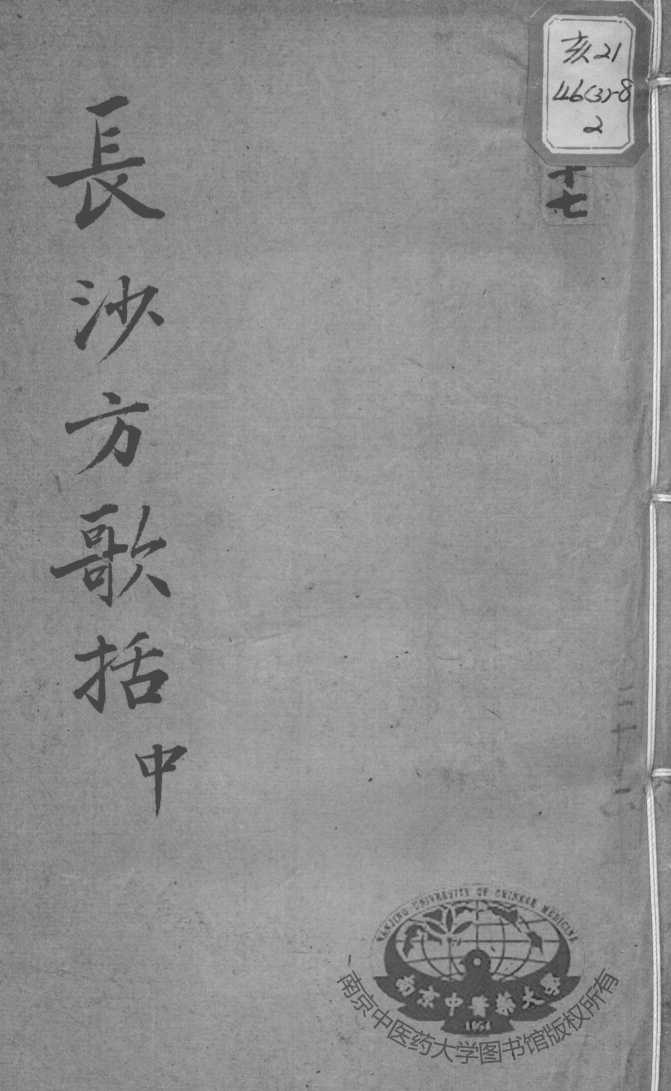 亥21
46(3)-8
2
十七
長沙方歌括中
NANJING UNIVERSITY OF CHINESE MEDICINE
南京中醫藥大學
1954
南京中医药大学图书馆版权所有